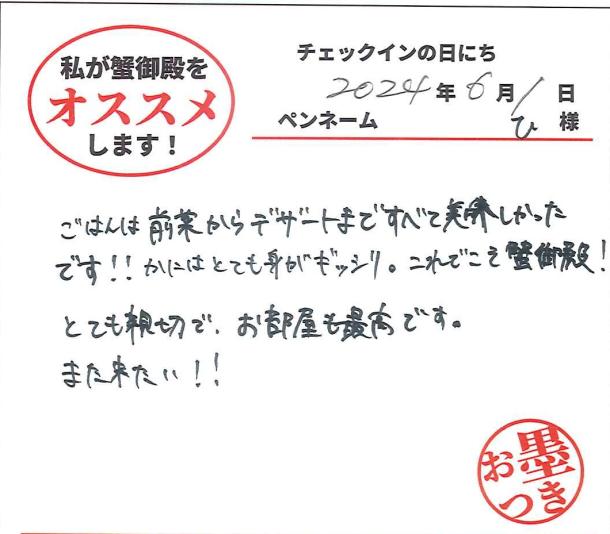 私が蟹御殿を
オススメ
します！
チェックインの日にち
2024年6月1日
ペンネーム ひ 様
ごはんは前菜からデザートまですべて美味しかった
です!! かにはとても身がギッシリ。これでこそ蟹御殿!
とても親切で、お部屋も最高です。
また来たい!!
お墨
つき